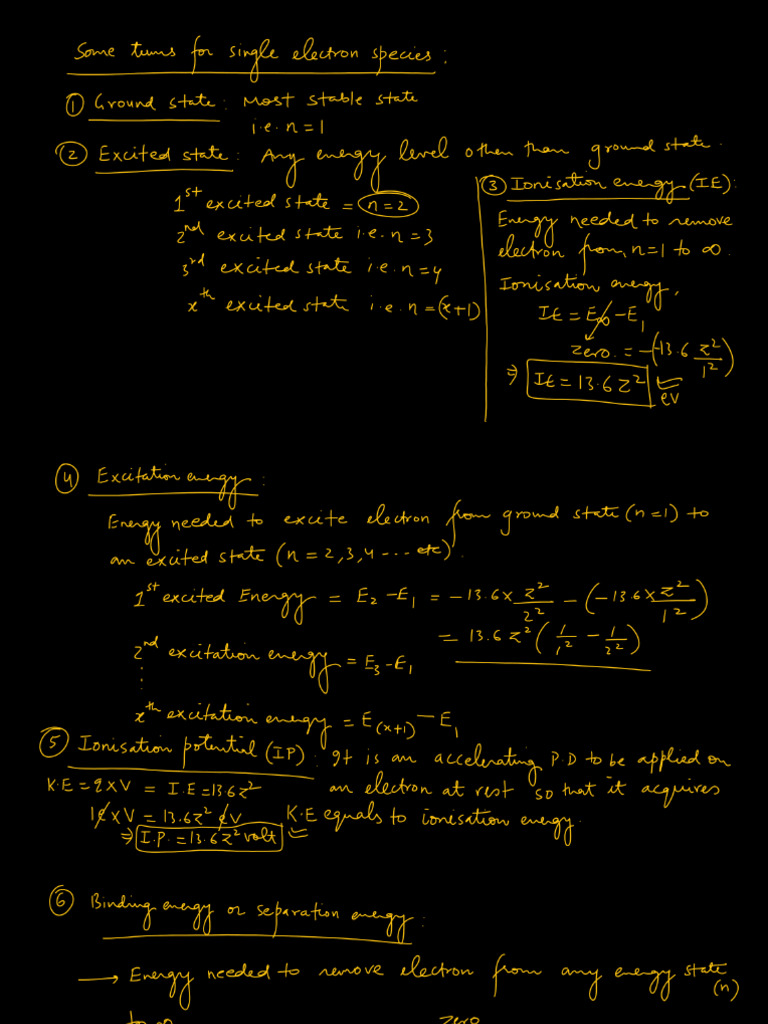 Some terms for single electron species :
① Ground state : Most stable state
i.e. n = 1
② Excited state : Any energy level other than ground state.
1st excited state = n = 2
2nd excited state i.e. n = 3
3rd excited state i.e. n = 4
xth excited state i.e. n = (x+1)
③ Ionisation energy (IE) :
Energy needed to remove
electron from, n=1 to ∞.
Ionisation energy,
IE = E∞ - E1
zero. = -(-13.6 z²/1²)
⇒ IE = 13.6 z² eV
④ Excitation energy :
Energy needed to excite electron from ground state (n=1) to
an excited state (n = 2,3,4 --- etc).
1st excited Energy = E2 - E1 = -13.6 x z²/2² - (-13.6 x z²/1²)
= 13.6 z² (1/1² - 1/2²)
2nd excitation energy = E3 - E1
⋮
xth excitation energy = E(x+1) - E1
⑤ Ionisation potential (IP) : It is an accelerating P.D to be applied on
an electron at rest so that it acquires
K.E equals to ionisation energy.
K.E = q x V = I.E = 13.6 z²
1e x V = 13.6 z² eV
⇒ I.P. = 13.6 z² volt
⑥ Binding energy or separation energy :
→ Energy needed to remove electron from any energy state
(n)
to ∞
zero